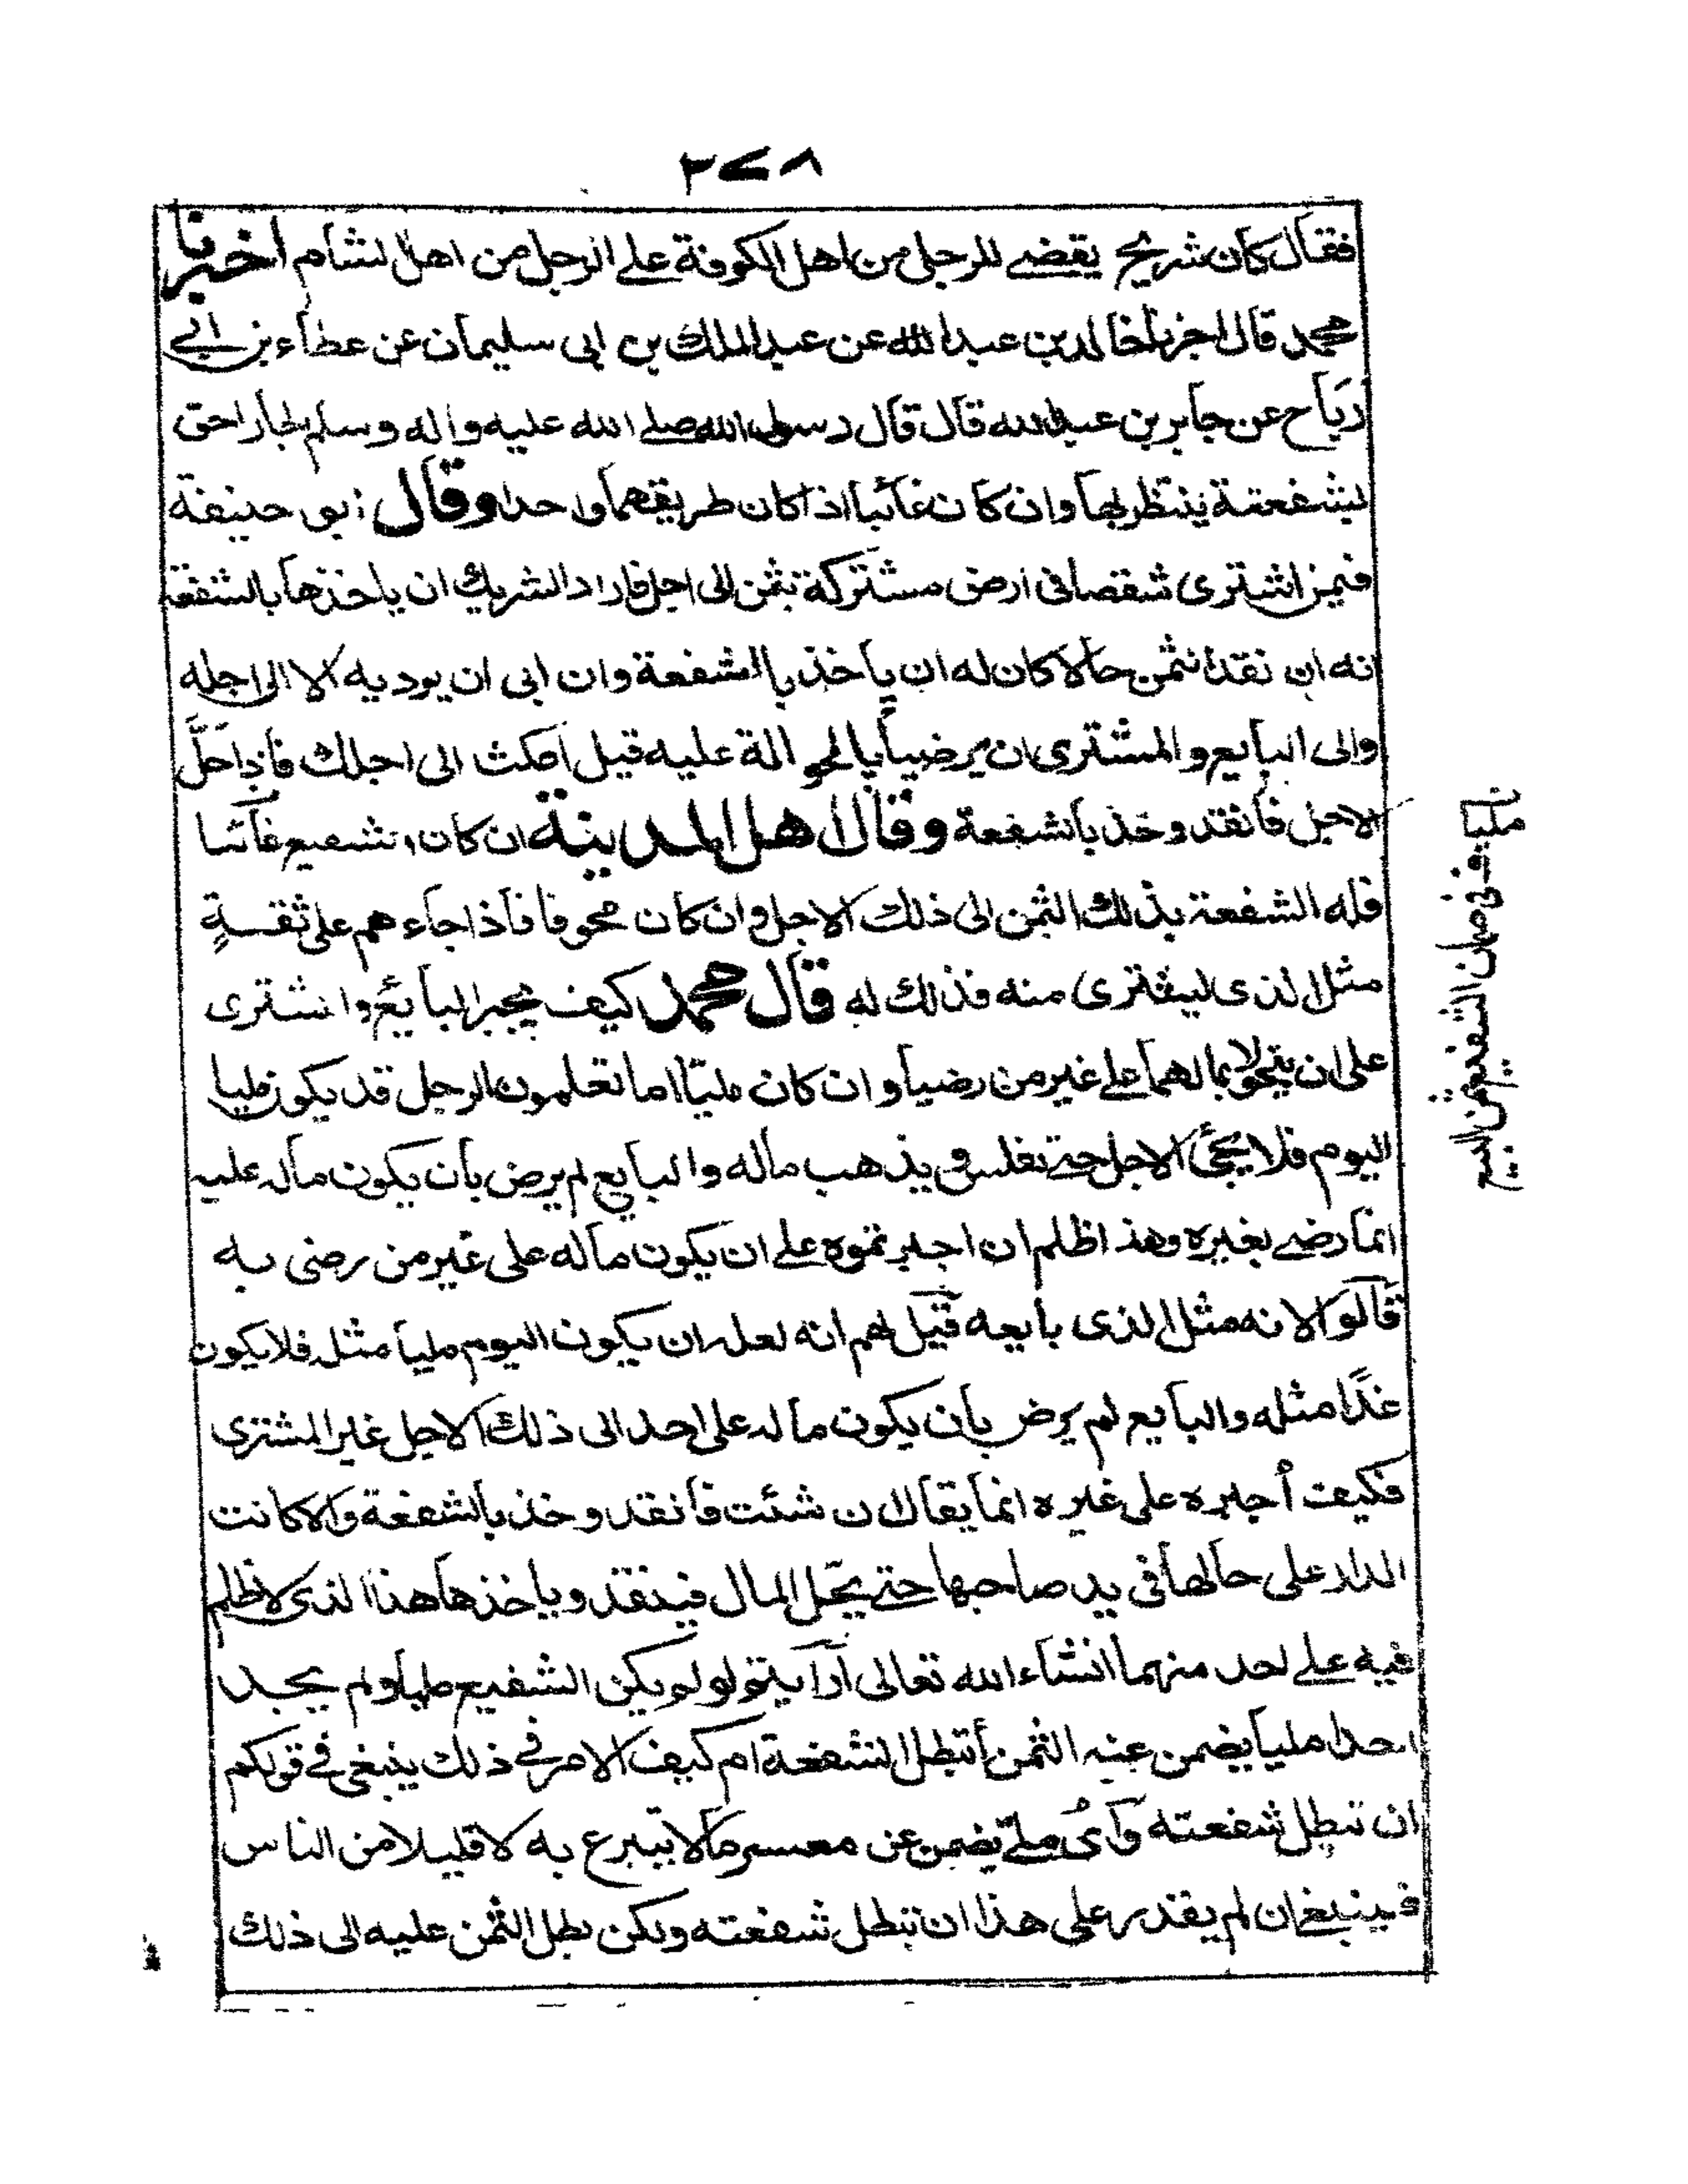 ٢٧٨
فقال كان شريح يقضے للرجل من اهل الكوفة علے الرجل من اهل الشام اخبرنا
محمد قال اخبرنا خالد بن عبد الله عن عبد الملك بن ابى سليمان عن عطاء بن ابے
رباح عن جابر بن عبد الله قال قال رسول الله صلے الله عليه واله وسلم الجار احق
بشفعته ينتظر بها وان كان غائبا اذا كان طريقهما واحدا وقال ابو حنيفة
فيمن اشترى شقصا فى ارض مشتركة بثمن الى اجل فاراد الشريك ان ياخذها بالشفعة
انه ان نقد الثمن حالا كان له ان يأخذ بالشفعة وان ابى ان يوديه الا الى اجله
والى البايع والمشترى ان يرضيا بالحوالة عليه قيل امكث الى اجلك فاذا حلَّ
الاجل فانقد وخذ بالشفعة وقال اهل المدينة ان كان الشفيع غائبا
فله الشفعة بذلك الثمن الى ذلك الاجل وان كان مخوفا فاذا جاءهم على ثقةٍ
مثل الذى ليشترى منه فذلك له قال محمد كيف يجبر البايع والمشترى
على ان يتحولا بمالهما علے غير من رضيا وان كان مليّا اما تعلمون ان الرجل قد يكون مليا
اليوم فلا يجئ الاجل حتے تفلس ويذهب ماله والبايع لم يرض بان يكون ماله عليه
انما رضے بغيره وهذا ظلم ان اجبرتموه علے ان يكون ماله على غير من رضى به
قالوا لانه مثل الذى بايعه قيل لهم انه لعله ان يكون اليوم مليا مثله فلا يكون
غدًا مثله والبايع لم يرض بان يكون ماله على احد الى ذلك الاجل غير المشترى
فكيف أجبره على غيره انما يقال ان شئت فانقد وخذ بالشفعة والا كانت
الدار على حالها فى يد صاحبها حتے يحّل المال فينقد وياخذها هذا الذى لا ظلم
فيه علے احد منهما انشاء الله تعالى أرأيتم لو لم يكن الشفيع مليا ولم يجد
احدا مليا يضمن عنه الثمن أتبطل الشفعة ام كيف الامر فے ذلك ينبغى فے قولكم
ان تبطل شفعته وأى ملّے يضمن عن معسر مالا يتبرع به الا قليلا من الناس
فينبغے ان لم يقدر على هذا ان تبطل شفعته ولكن بطل الثمن عليه الى ذلك
مليا
فى ضمان الشفيع ثمن البيع